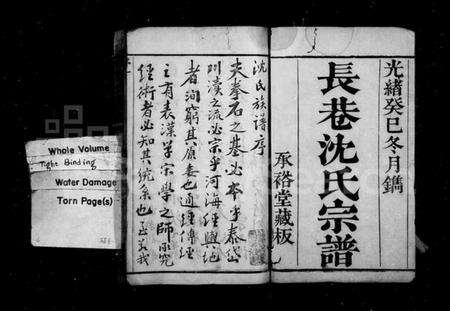 光緒癸巳冬月鐫
長巷沈氏宗譜
承裕堂藏板
沈氏族譜序
夫拳石之基必本乎泰岱
圳瀆之流必宗乎河海經興絕
者洄窮其原委也通經傳經
之有表漢羊宗學之師承究
經術者必知其統系也至若我
Whole Volume
Tight Binding
Water Damage
Torn Page(s)